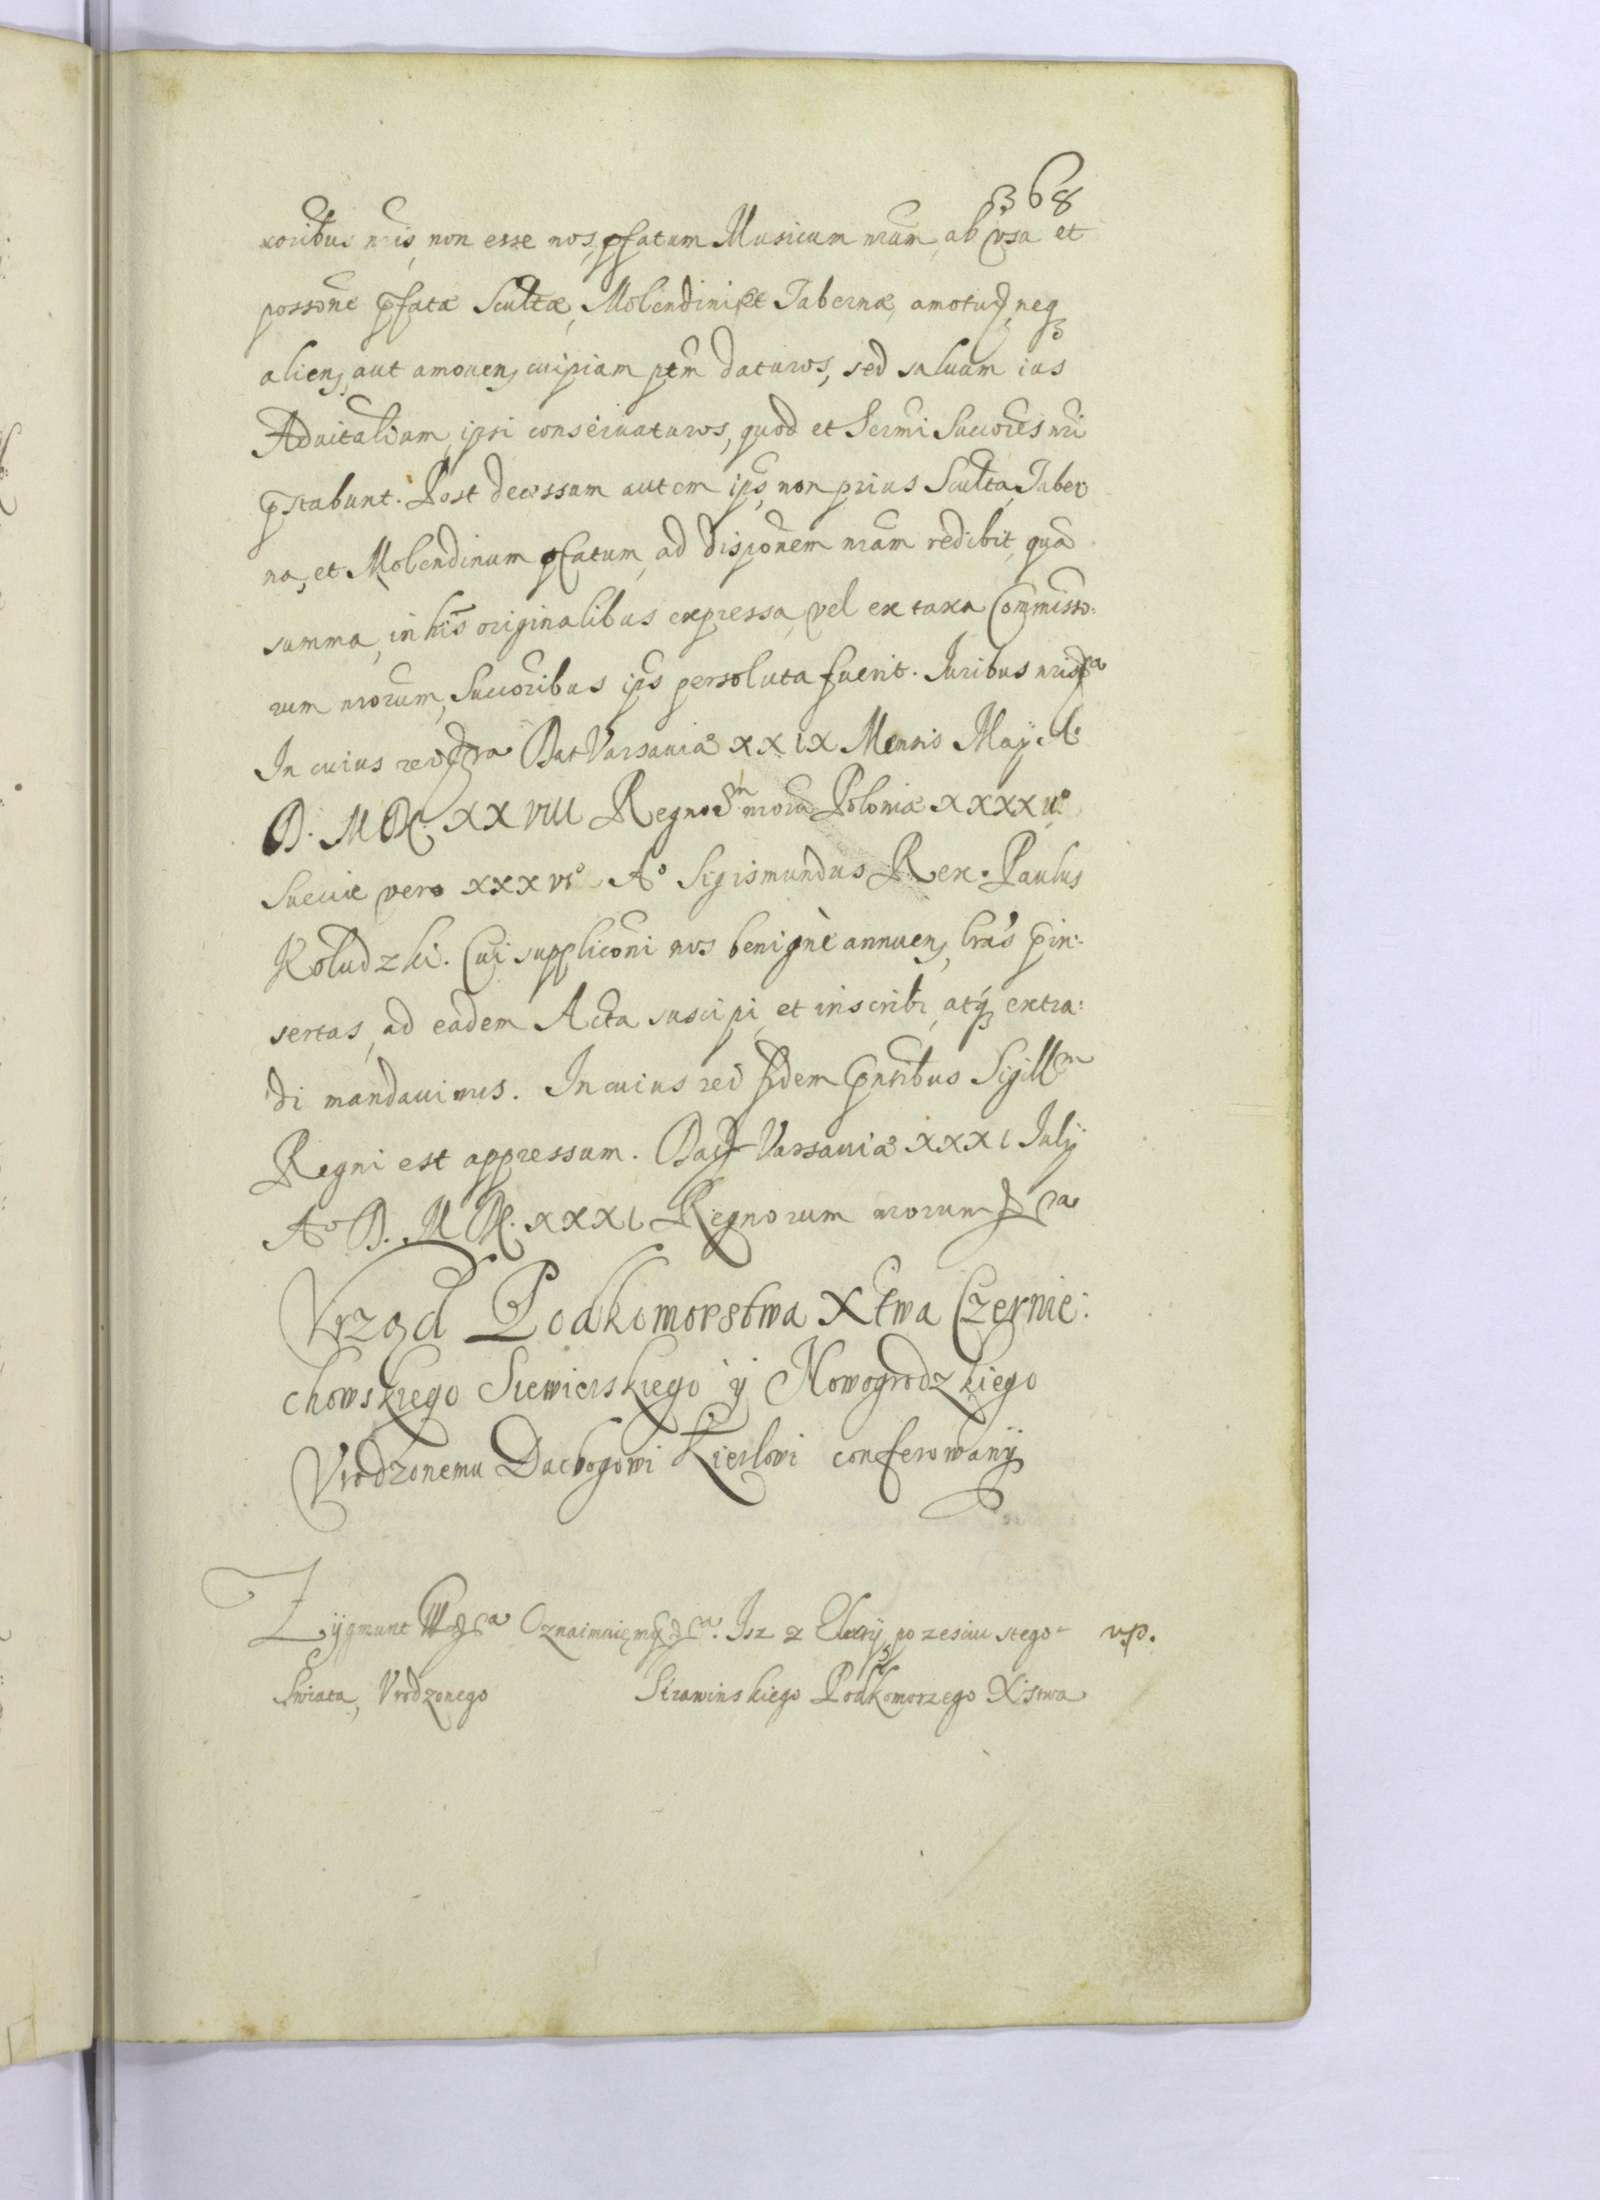 368
xoribus nris, non esse nos, pfatum Musicum nrum, ab vsu et
possone pfatæ Scultæ, Molendini et Tabernæ, amoturos, neq
alien, aut amouen, cuipiam ptm daturos, sed saluum ius
Aduitalium, ipsi conseruaturos, quod et Sermi Succores nri
pstabunt. Post decessum autem ips, non prius Sculta, Taber
na, et Molendinum pfatum, ad disponem nram redibit, qua
summa, in hris originalibus expressa, vel ex taxa Commisso:
rum nrorum, Succoribus ips persoluta fuerit. Iuribus nris
In cuius rei Dat Varsauiæ XXIX Mensis Maij A°
D. M DC. XXVIII Regnor nroru Poloniæ XXXXII°
Sueciæ vero XXXVI° A° Sigismundus Rex. Paulus
Koludzki. Cui supplicõni nos benignè annuen, lras pin:
sertas, ad eadem Acta suscipi, et inscribi, atq extra:
di mandauimus. In cuius rei fidem pntibus Sigillm
Regni est appressum. Dat Varsauiæ XXXI Iulij
A° D. M DC. XXXI Regnorum nrorum
Vrząd Podkomorstwa Xtwa Czernie:
chowskiego Siewierskiego ÿ Nowogrodzkiego
Vrodzonemu Dachogowi Kierlowi conferowanÿ
Zÿgmunt Oznaimuięmÿ. Isz z ÿ po zesciu stego
Swiata, Vrodzonego Strawinskiego Podkomorzego Xistwa